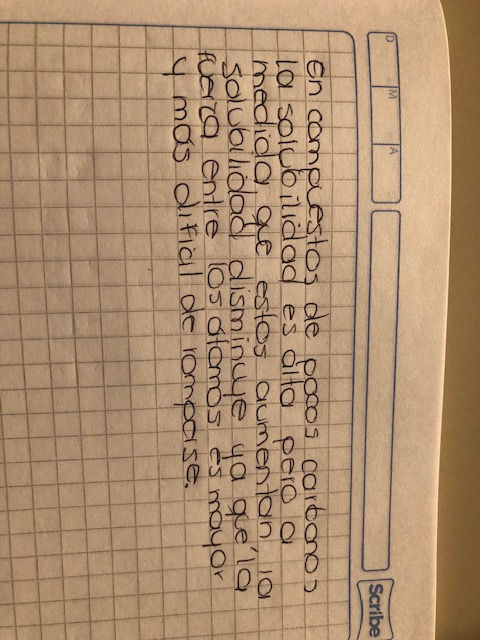 D M A
Scribe
en compuestos de pocos carbonos
la solubilidad es alta pero a
medida que estos aumentan la
solubilidad disminuye ya que la
fuerza entre los átomos es mayor
y más dificil de romperse.